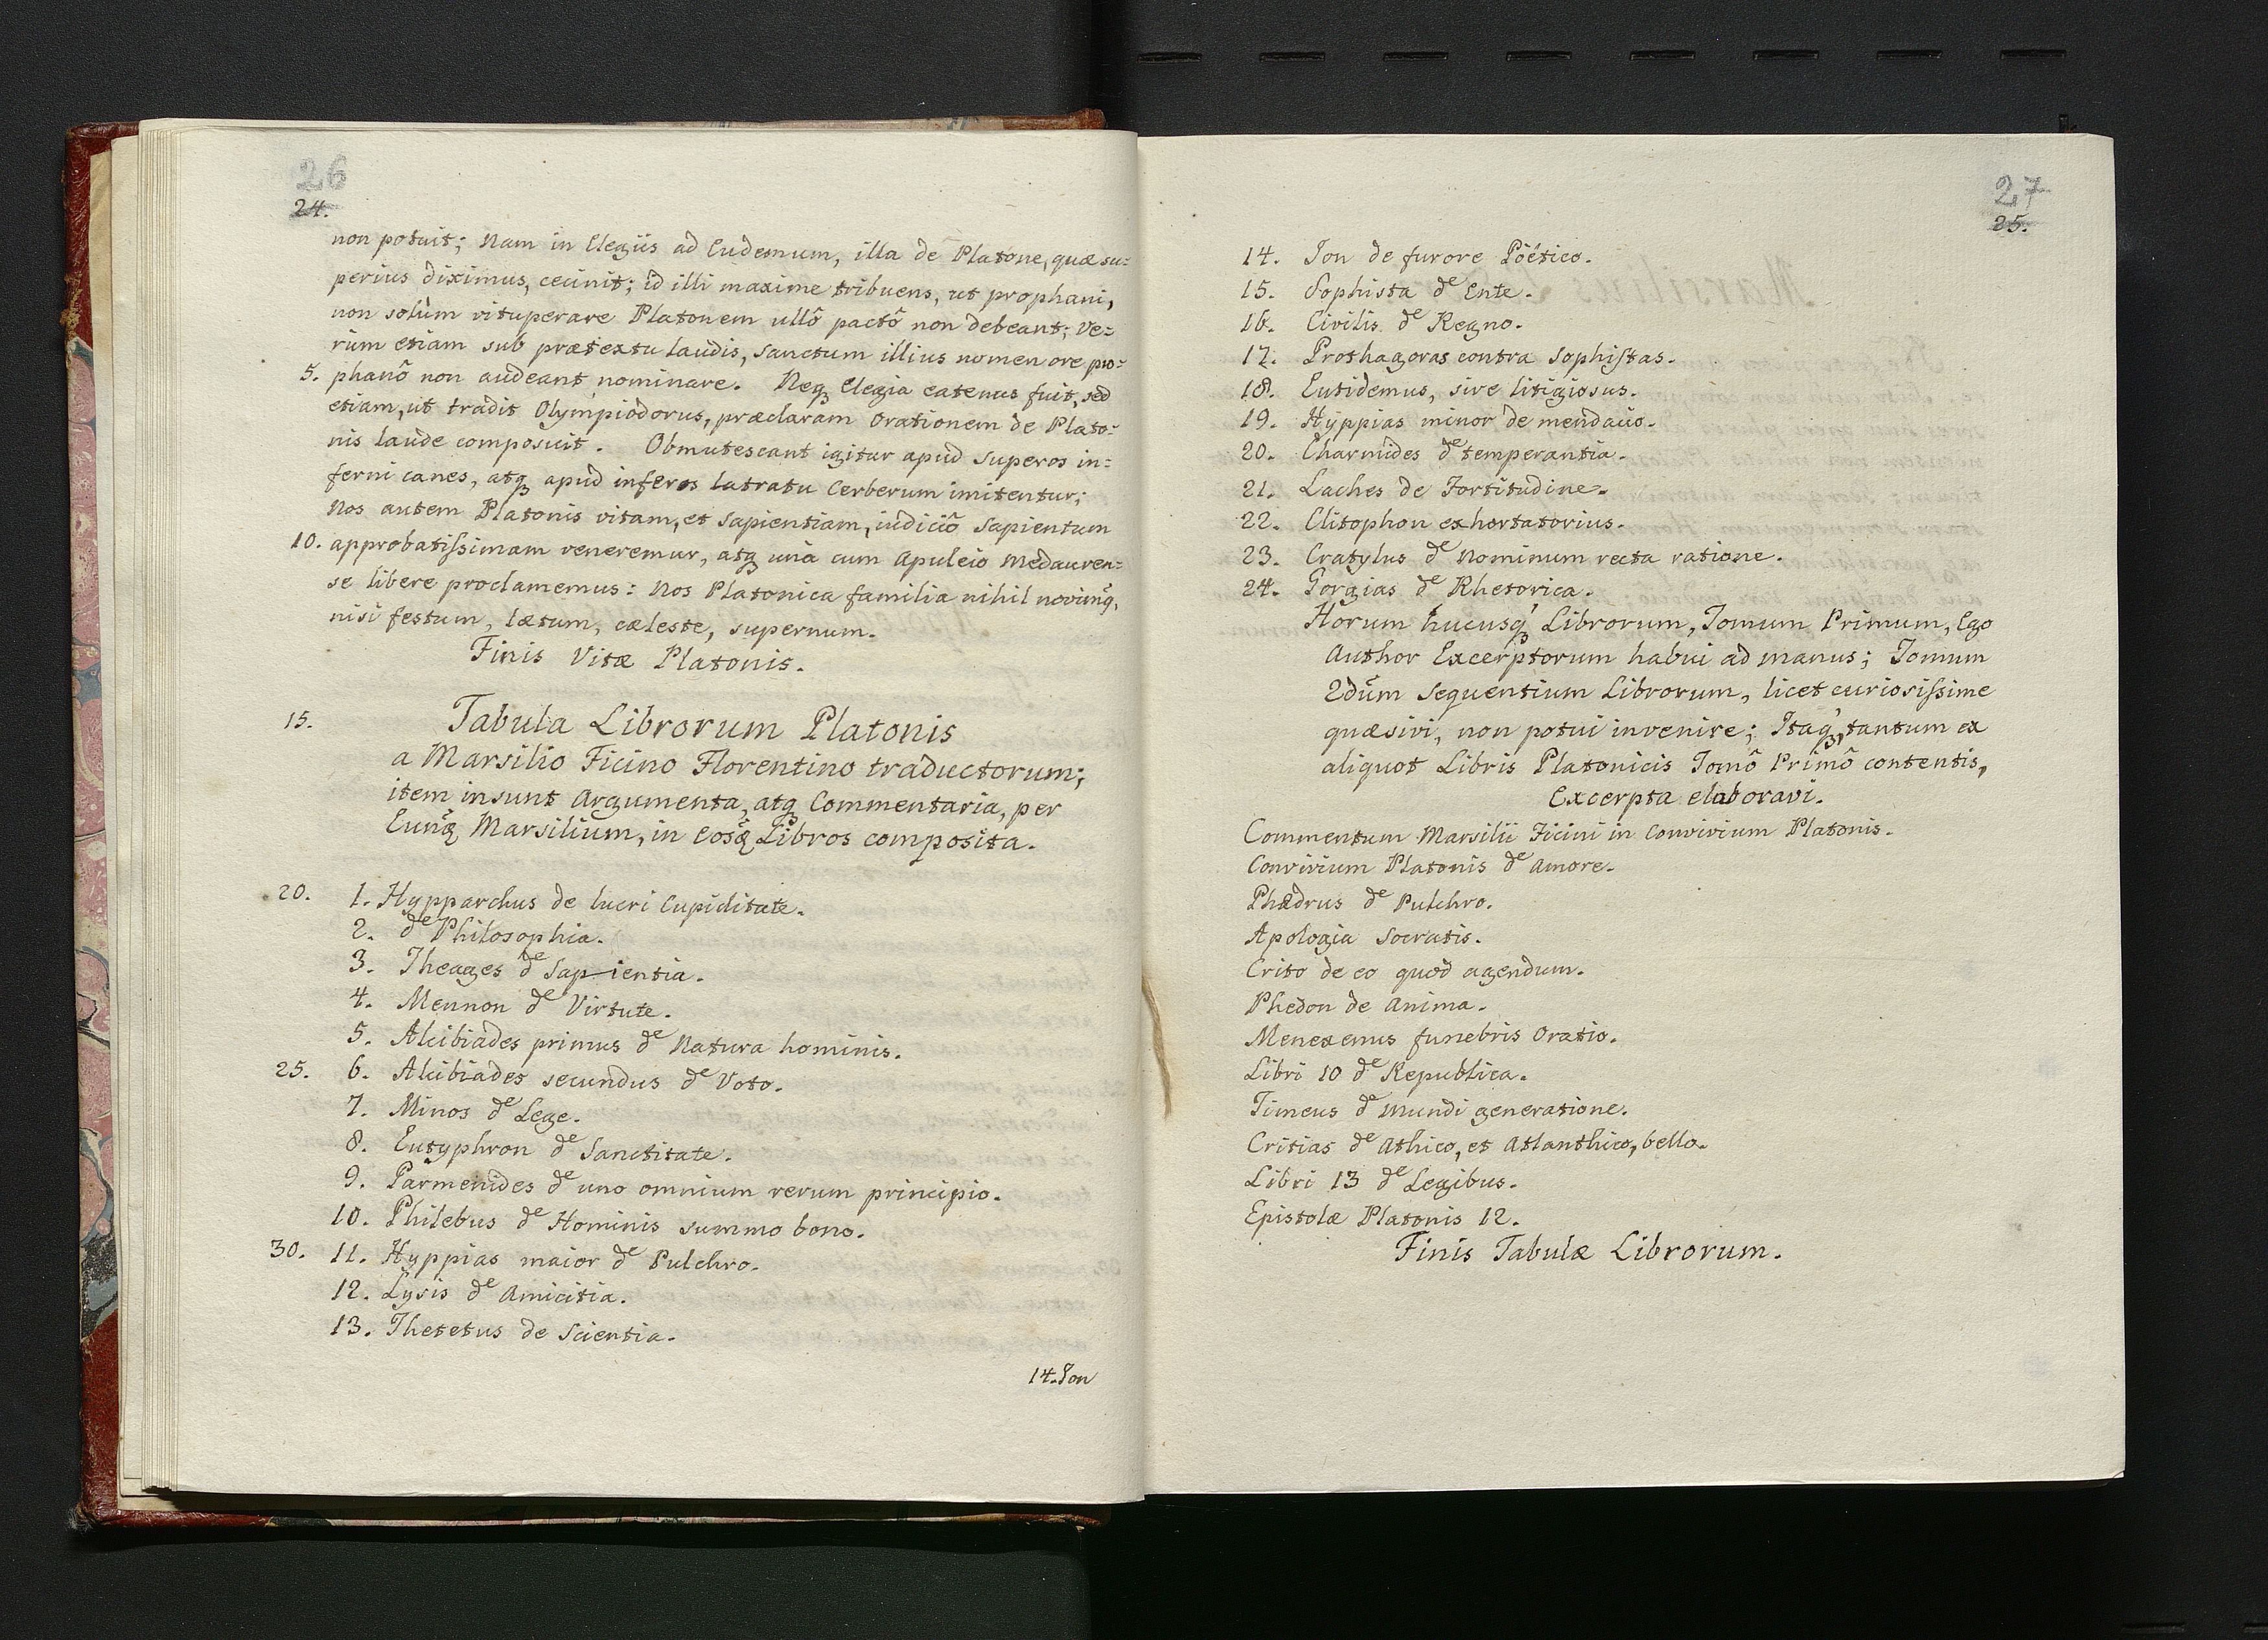 26
24.
non potuit; Nam in Elegiis ad Eudemum, illa de Platone, quæ su=
perius diximus, cecinit; id illi maxime tribuens, ut prophani,
non solùm vituperare Platonem ullô pactô non debeant; ve=
rùm etiam sub prætextu laudis, sanctum illius nomen ore pro=
5. phanô non audeant nominare. Neqꝫ Elegia eatenus fuit, sed
etiam, ut tradit Olympiodorus, præclaram Orationem de Plato=
nis laude composuit. Obmutescant igitur apud Superos in=
ferni canes, atqꝫ apud inferos latratu Cerberum imitentur;
Nos autem Platonis vitam, et Sapientiam, iudiciô Sapientum
10. approbatiſsimam veneremur, atqꝫ unà cum Apuleio Medauren=
se libere proclamemus: Nos Platonica familia nihil novimꝰ,
nisi festum, lætum, cæleste, supernum.
Finis Vitæ Platonis.
15. Tabula Librorum Platonis
a Marsilio Ficino Florentino traductorum;
item insunt Argumenta, atqꝫ Commentaria, per
Eunđꝫ Marsilium, in Eosđꝫ Libros composita.
20. 1. Hypparchus de lucri Cupiditate.
2. de Philosophia.
3. Theages de Sapientia.
4. Mennon de Virtute.
5. Alcibiades primus de Natura hominis.
25. 6. Alcibiades secundus de Voto.
7. Minos de Lege.
8. Eutyphron de Sanctitate.
9. Parmenides de uno omnium rerum principio.
10. Philebus de Hominis summo bono.
30. 11. Hyppias maior de Pulchro.
12. Lysis de Amicitia.
13. Thetetus de Scientia.
14. Ion
27
25.
14. Ion de furore Poëtico.
15. Sophista de Ente.
16. Civilis de Regno.
17. Prothagoras contra Sophiſtas.
18. Eutidemus, sive litigiosus.
19. Hyppias minor de mendacio.
20. Charmides de temperantia.
21. Laches de Fortitudine.
22. Clitophon exhortatorius.
23. Cratylus de Nominum recta ratione.
24. Gorgias de Rhetorica.
Horum hucusqꝫ Librorum, Tomum Primum, Ego
Author Excerptorum habui ad manus; Tomum
2dũm sequentium Librorum, licet curiosiſsime
quæsivi, non potui invenire; Itaqꝫ, tantum ex
aliquot Libris Platonicis Tomô Primô contentis,
Excerpta elaboravi.
Commentum Marsilii Ficini in Convivium Platonis.
Convivium Platonis de Amore.
Phædrus de Pulchro.
Apologia Socratis.
Crito de eo quod agendum.
Phedon de Anima.
Menexemus funebris Oratio.
Libri 10 de Republica.
Timeus de mundi generatione.
Critias de Athico, et Atlanthico, bello.
Libri 13 de Legibus.
Epistolæ Platonis 12.
Finis Tabulæ Librorum.